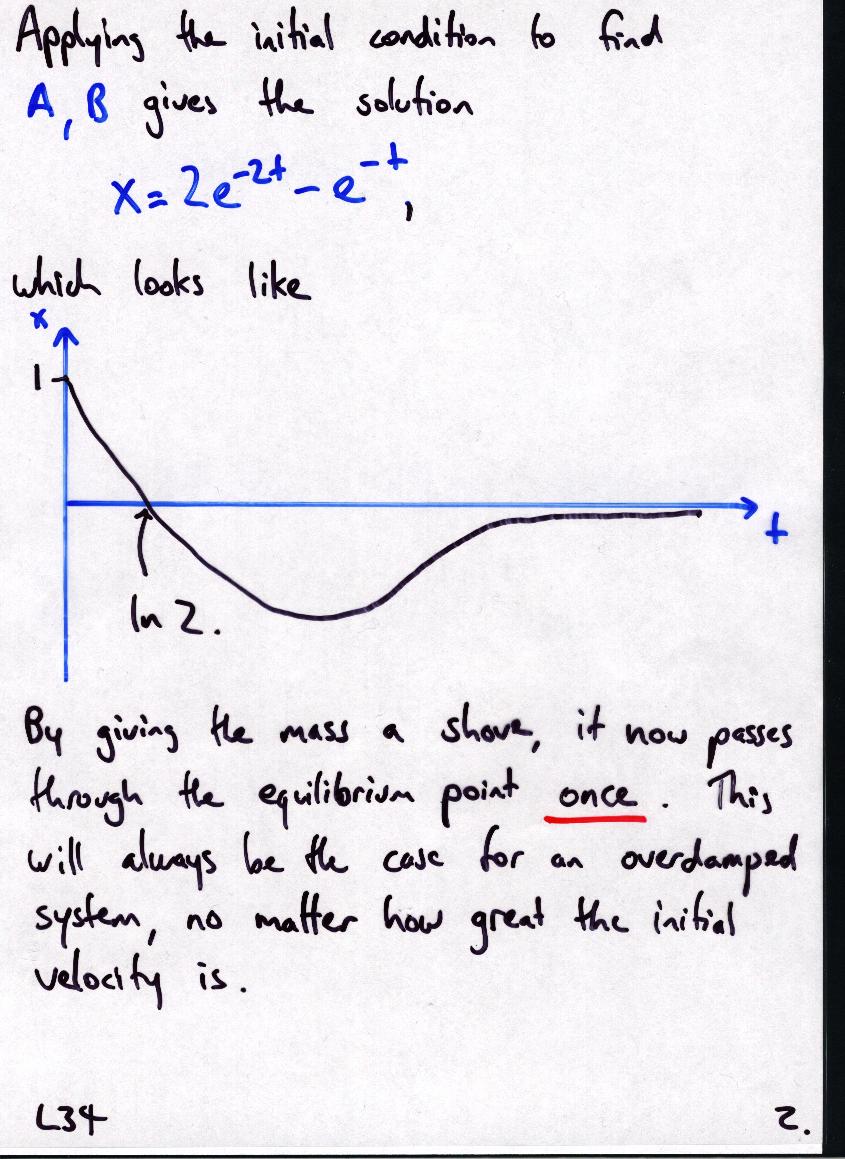 Applying the initial condition to find
A, B gives the solution
x = 2e^{-2t} - e^{-t},
which looks like
x
1
t
ln 2.
By giving the mass a shove, it now passes
through the equilibrium point once. This
will always be the case for an overdamped
system, no matter how great the initial
velocity is.
L34 2.